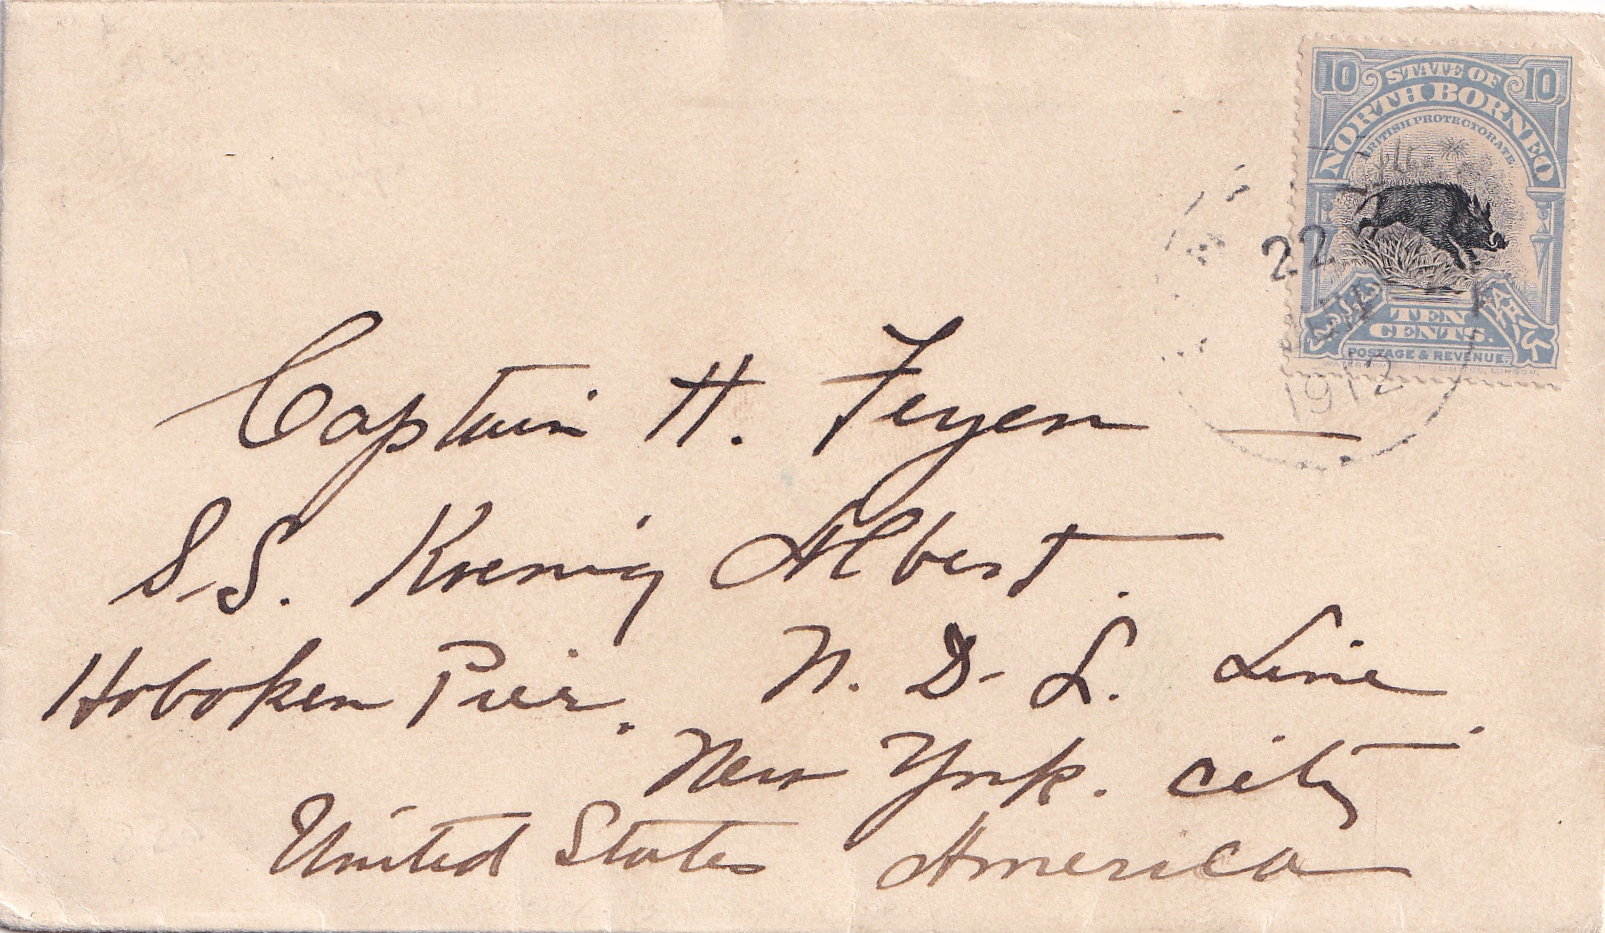 10 STATE OF 10
NORTH BORNEO
BRITISH PROTECTORATE
22
TEN
CENTS.
POSTAGE & REVENUE
1912
Captain H. Feyen
S.S. Koenig Albert.
Hoboken Pier. N. D. L. Line.
New York. City
United States America